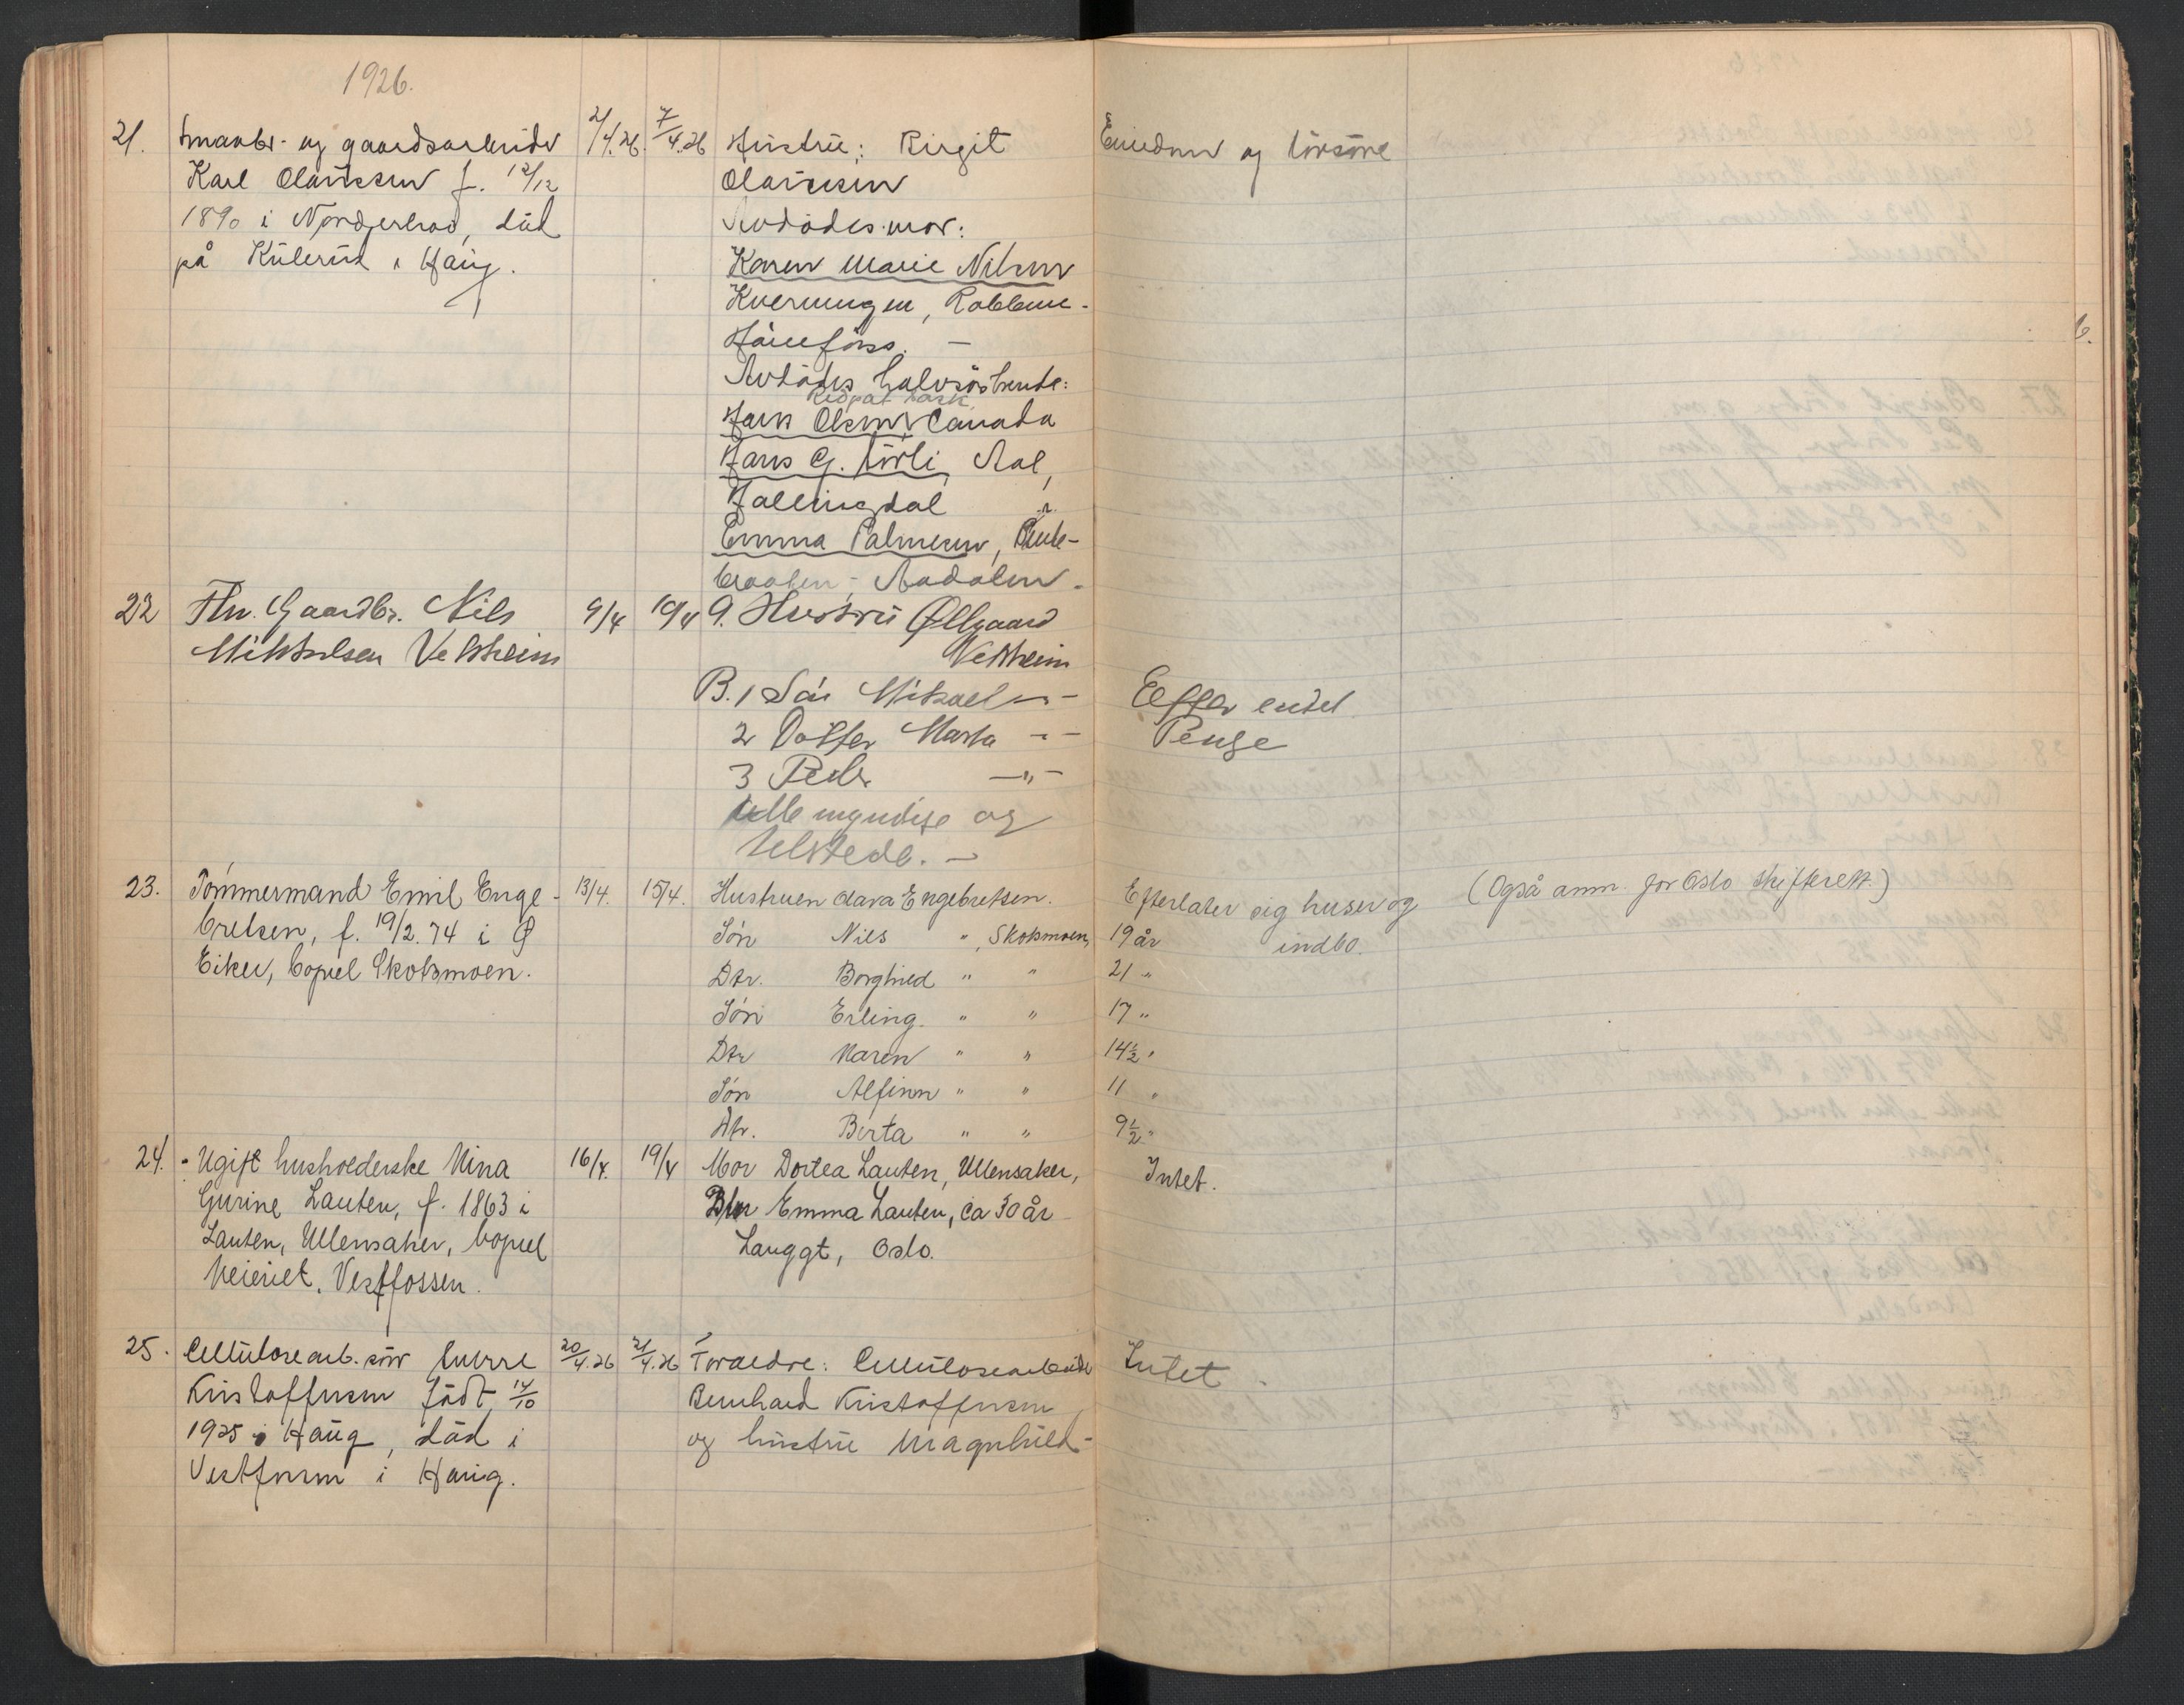 1926.
21. Smaabr.- og gaardsarbeider
Karl Olaussen f. 12/12
1890 i Norderhov, død
på Kulerud i Haug.
2/4.26. 7/4.26
Hustru: Birgit
Olaussen
Avdødes mor:
Karen Marie Nilsen
Kverningen, Rabbene-
Hønefoss. —
Avdødes halvsøskende:
Hans Olsen Canada
Hans G. Turli, Aal,
Hallingdal
Emma Palmesen,
braaten - Aadalen.
Eiendom og løsøre
22 Fhv. Gaardbr. Nils
Mikkelsen Veksheim
9/4 10/4
A. Hustru Øllgaard
Veksheim
B. 1 Søn Mikael -"-
2 Datter Marta -"-
3 Peder -"-
alle myndige og
tilstede. —
Efter endel
Penge
23. Tømmermand Emil Enge-
bretsen, f. 19/2. 74 i Ø
Eiker, bopæl Skotsmoen.
13/4. 15/4.
Hustruen Clara Engebretsen.
Søn Nils ", Skotsmoen, 19 år
Dtr. Borghild " " 21 "
Søn Erling " " 17 "
Dtr Maren " " 14½ "
Søn Alfinn " " 11 "
Dtr. Berta " " 9½ "
Efterlater sig huser og
indbo.
(Også anm. for Oslo Skifterett.)
24. Ugift husholderske Nina
Gurine Lauten, f. 1863 i
Lauten, Ullensaker, bopæl
Meieriet, Vestfossen.
16/4. 19/4
Mor Dortea Lauten, Ullensaker,
Dtr Emma Lauten, ca 30 år
Langgt, Oslo.
Intet.
25. Cellulosearb. søn Sverre
Kristoffersen født 14/10
1925 i Haug, død i
Vestfossen i Haug.
20/4.26 21/4.26
Foraeldre: Cellulosearbeider
Bernhard Kristoffersen
og hustru Magnhild -
Intet.
6.